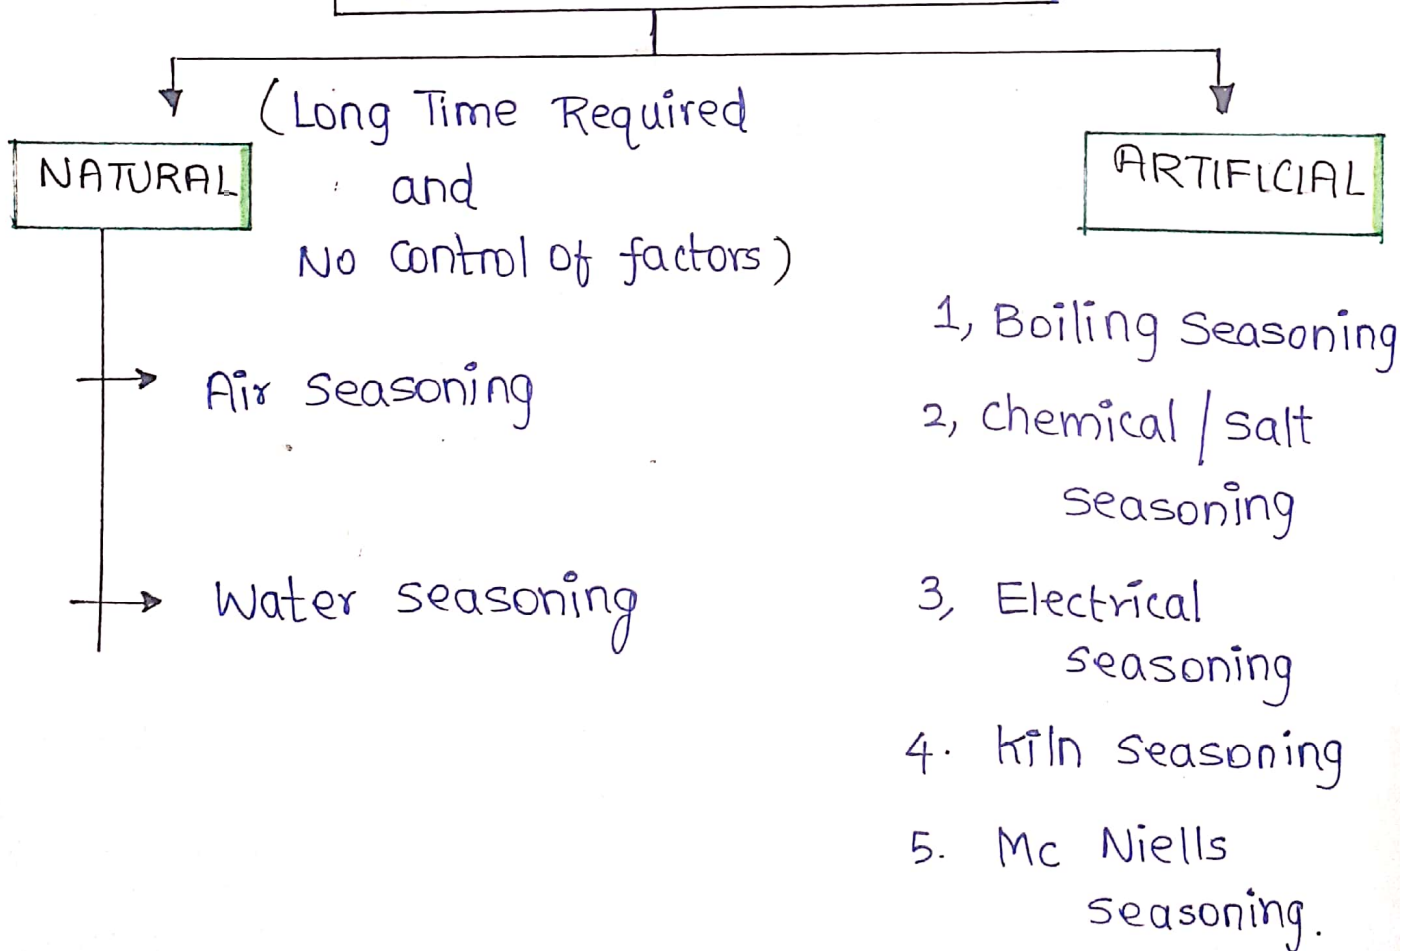 (Long Time Required
and
No control of factors)
NATURAL
Air seasoning
Water seasoning
ARTIFICIAL
1, Boiling seasoning
2, chemical / salt
seasoning
3, Electrical
seasoning
4. kiln seasoning
5. Mc Niells
seasoning.